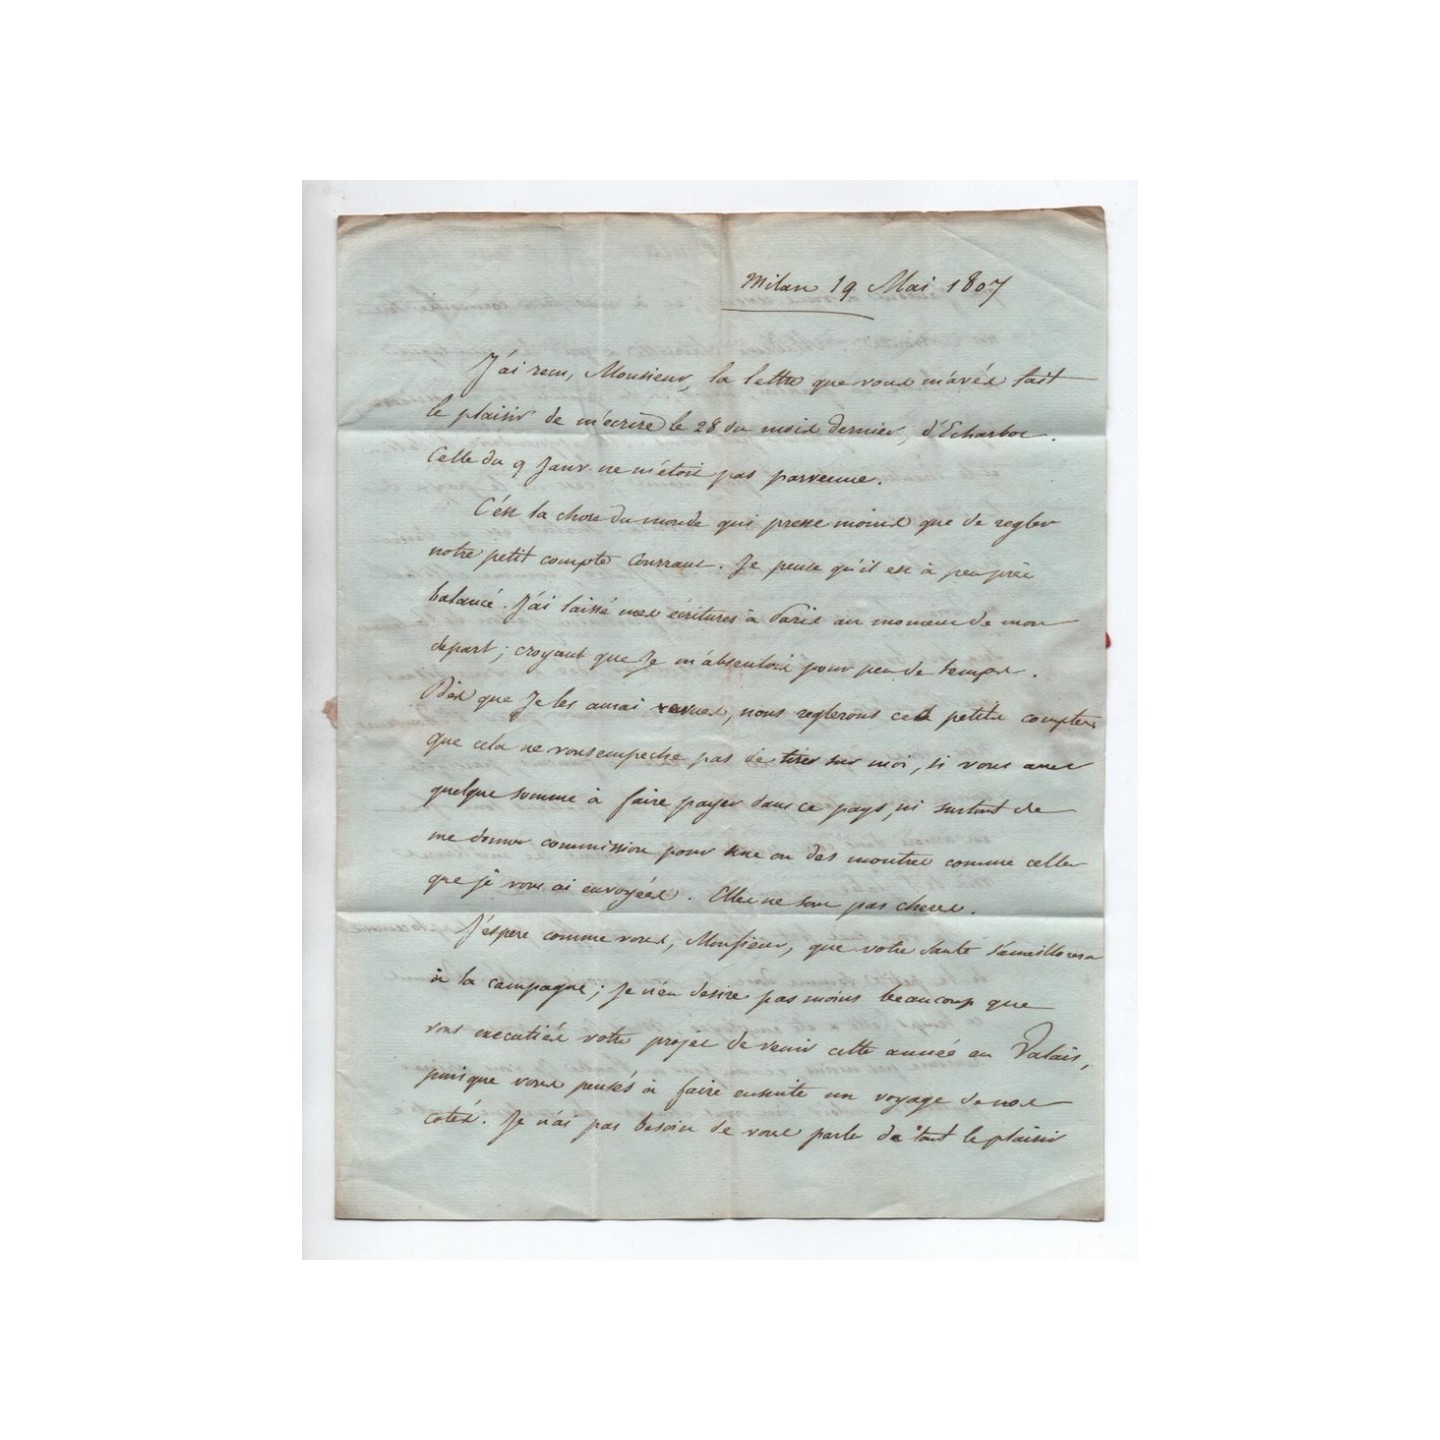 Milan 19 Mai 1807
J'ai recu, Monsieur, la lettre que vous m'avés fait
le plaisir de m'écrire le 28 du mois dernier, d'Echarbot.
Celle du 9 Janv. ne m'étoit pas parvenue.
C'est la chose du monde qui presse moins que de regler
notre petit compte Courrant. Je pense qu'il est à peu près
balancé. J'ai laissé mes écritures à Paris au moment de mon
depart; croyant que Je m'absentois pour peu de temps.
Dès que Je les aurai revues, nous reglerons ces petits comptes
que cela ne vous empeche pas de tirer sur moi, si vous avez
quelque somme à faire payer dans ce pays, ni surtout de
me donner commission pour une ou des montres comme celles
que je vous ai envoyées. Elles ne sont pas cheres.
J'espere comme vous, Monsieur, que votre Santé s'ameillorera
à la campagne; Je n'en desire pas moins beaucoup que
vous executiés votre projet de venir cette année en Valais,
puisque vous pensés à faire ensuite un voyage de nos
cotés. Je n'ai pas besoin de vous parler de tout le plaisir